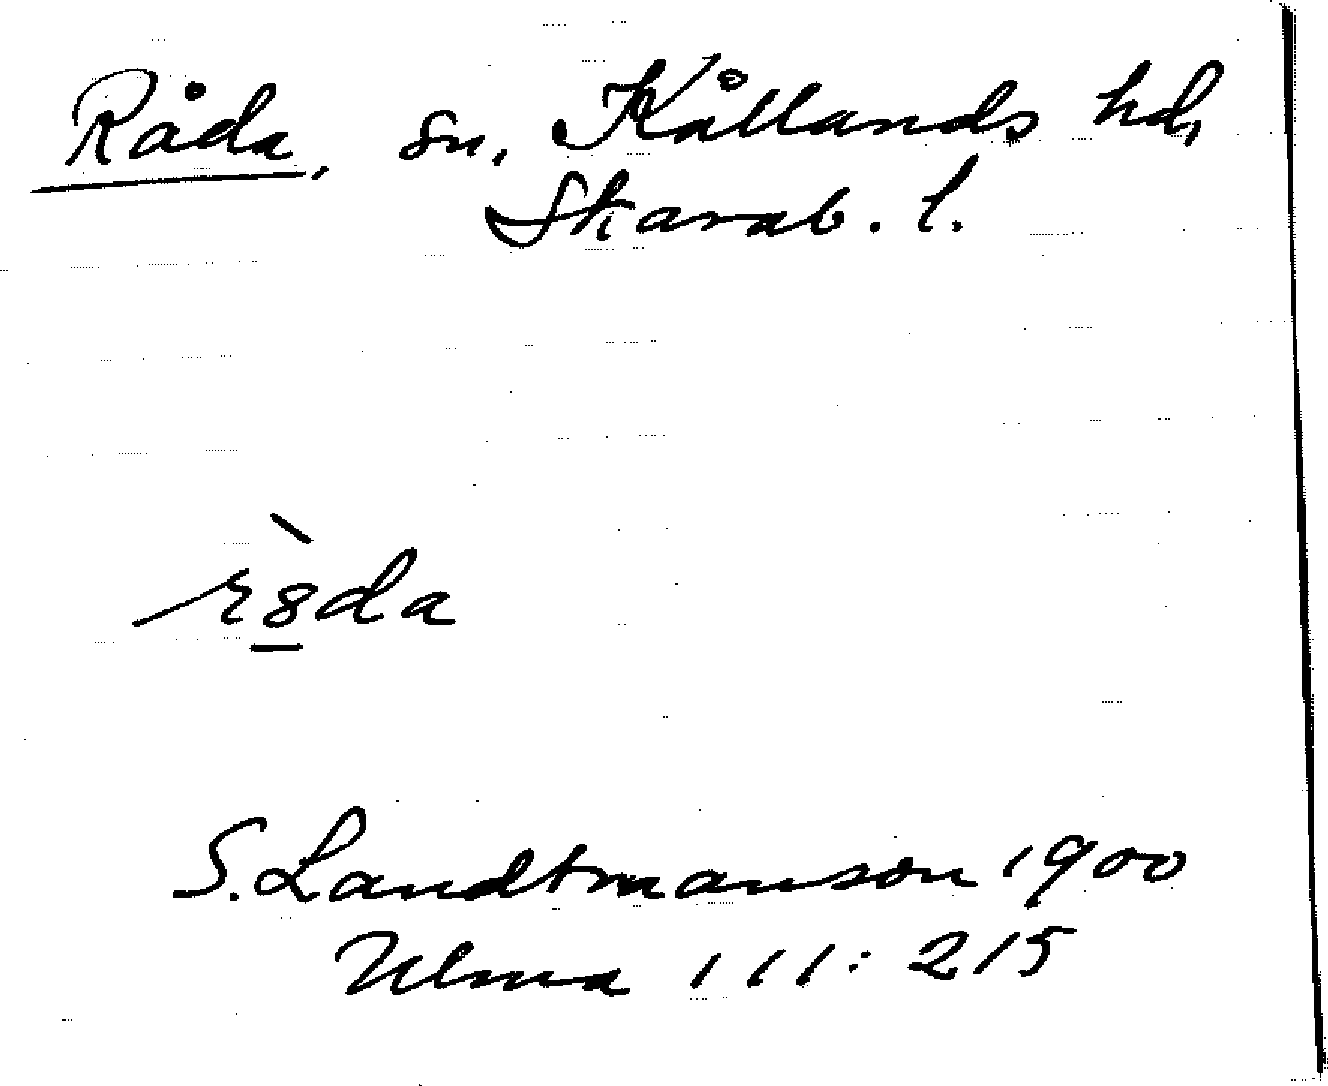 Råda, sn, Kållands hd,
Skarab. l.
r8̲̀da
S. Landtmanson 1900
Ulma 111:215